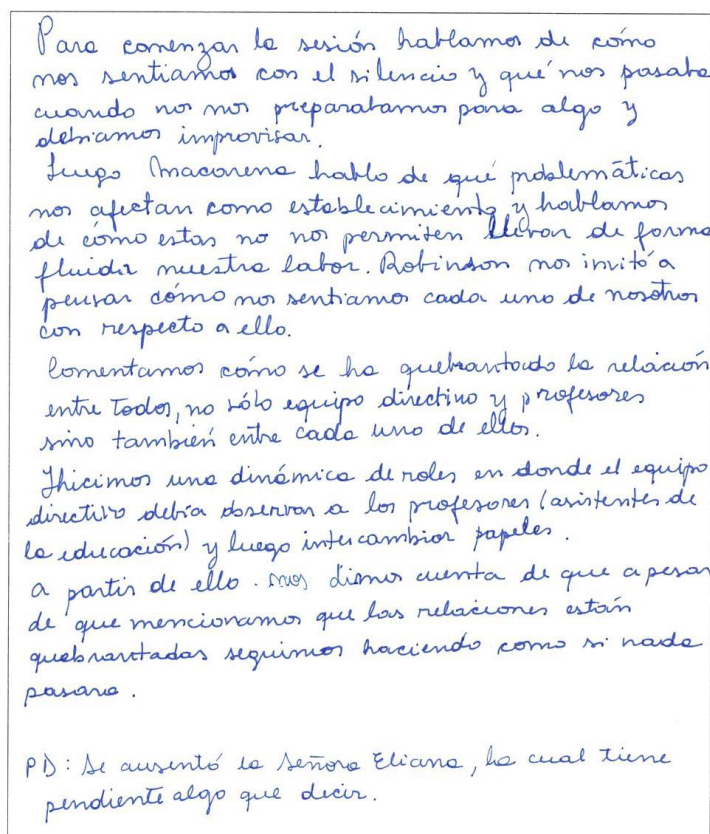 Para comenzar la sesión hablamos de cómo
nos sentiamos con el silencio y qué nos pasaba
cuando no nos preparabamos para algo y
debiamos improvisar.
Luego Macarena hablo de qué problemáticas
nos afectan como establecimiento y hablamos
de cómo estas no nos permiten llevar de forma
fluida nuestra labor. Robinson nos invitó a
pensar cómo nos sentiamos cada uno de nosotros
con respecto a ello.
Comentamos cómo se ha quebrantado la relación
entre Todos, no sólo equipo directivo y profesores
sino también entre cada uno de ellos.
Hicimos una dinámica de roles en donde el equipo
directivo debía observar a los profesores (asistentes de
la educación) y luego intercambiar papeles.
a partir de ello. nos dimos cuenta de que a pesar
de que mencionamos que las relaciones están
quebrantadas seguimos haciendo como si nada
pasara.
PD: Se ausentó la Señora Eliana, la cual tiene
pendiente algo que decir.